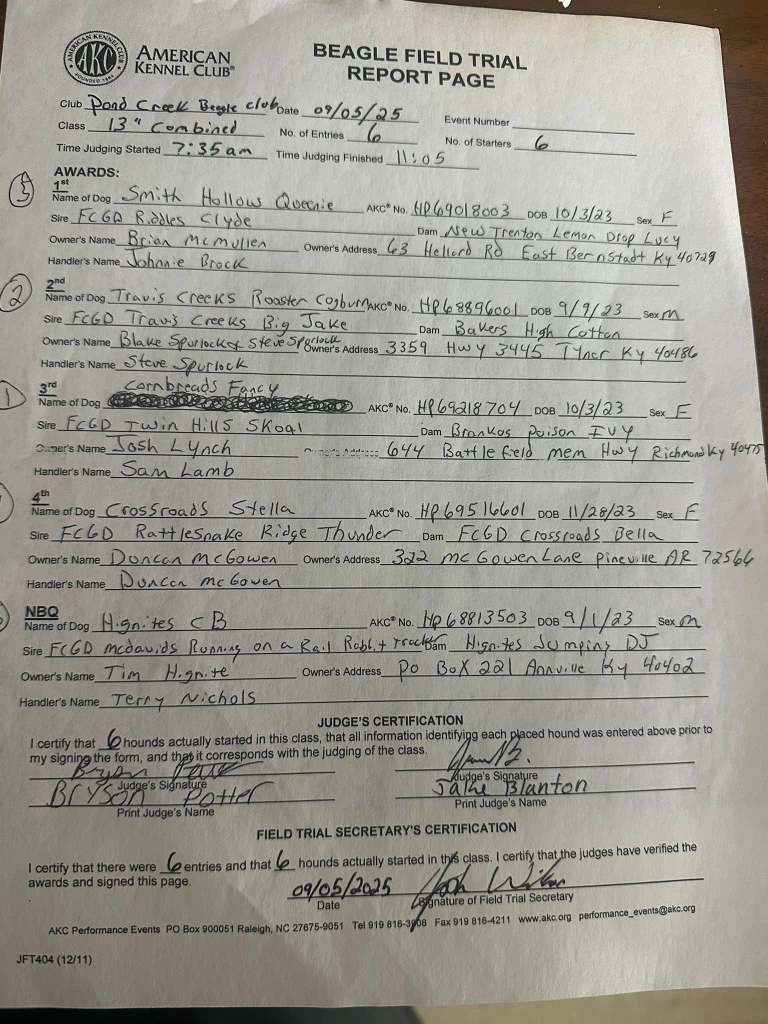 AMERICAN KENNEL CLUB
AKC
AMERICAN
KENNEL CLUB®
FOUNDED 1884
BEAGLE FIELD TRIAL
REPORT PAGE
Club Pond Creek Beagle club Date 09/05/25 Event Number
Class 13" Combined No. of Entries 6 No. of Starters 6
Time Judging Started 7:35 am Time Judging Finished 11:05
AWARDS:
1st
Name of Dog Smith Hollow Queenie AKC® No. HP69018003 DOB 10/3/23 Sex F
Sire FCGD Riddles Clyde Dam New Trenton Lemon Drop Lucy
Owner's Name Brian McMullen Owner's Address 63 Hellard Rd East Bernstadt Ky 40729
Handler's Name Johnnie Brock
2
2nd
Name of Dog Travis Creeks Rooster Cogburn AKC® No. HP68896001 DOB 9/9/23 Sex m
Sire FCGD Travis Creeks Big Jake Dam Bakers High Cotton
Owner's Name Blake Spurlock & Steve Spurlock Owner's Address 3359 Hwy 3445 Tyner Ky 40486
Handler's Name Steve Spurlock
1
3rd Cornbreads Fancy
Name of Dog AKC® No. HP69218704 DOB 10/3/23 Sex F
Sire FCGD Twin Hills Skoal Dam Brankos Poison IVY
Owner's Name Josh Lynch Owner's Address 644 Battlefield mem Hwy Richmond Ky 40475
Handler's Name Sam Lamb
4th
Name of Dog Crossroads Stella AKC® No. HP69516601 DOB 11/28/23 Sex F
Sire FCGD Rattlesnake Ridge Thunder Dam FCGD Crossroads Bella
Owner's Name Duncan McGowen Owner's Address 322 McGowen Lane Pineville AR 72566
Handler's Name Duncan McGowen
NBQ
Name of Dog Hignites CB AKC® No. HP68813503 DOB 9/1/23 Sex m
Sire FCGD mcdavids Running on a Rail Rabbit Tracker Dam Hignites Jumping DJ
Owner's Name Tim Hignite Owner's Address PO BOX 221 Annville Ky 40402
Handler's Name Terry Nichols
JUDGE'S CERTIFICATION
I certify that 6 hounds actually started in this class, that all information identifying each placed hound was entered above prior to
my signing the form, and that it corresponds with the judging of the class.
Judge's Signature Judge's Signature
BRYSON Potter Jake Blanton
Print Judge's Name Print Judge's Name
FIELD TRIAL SECRETARY'S CERTIFICATION
I certify that there were 6 entries and that 6 hounds actually started in this class. I certify that the judges have verified the
awards and signed this page.
09/05/2025
Date Signature of Field Trial Secretary
AKC Performance Events PO Box 900051 Raleigh, NC 27675-9051 Tel 919 816-3908 Fax 919 816-4211 www.akc.org performance_events@akc.org
JFT404 (12/11)